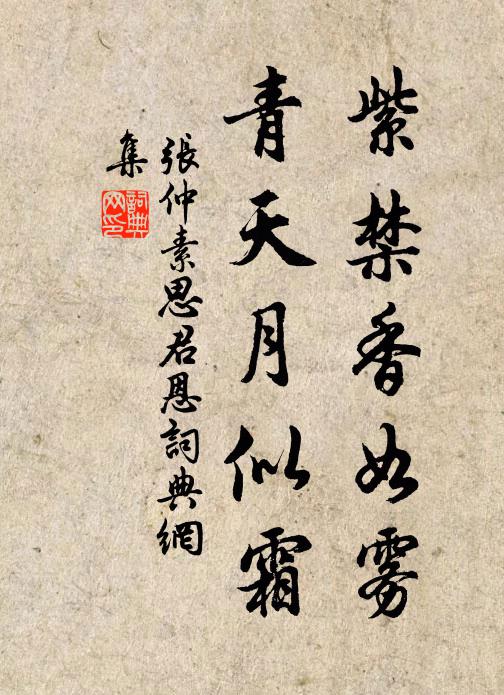 紫禁香如雾
青天月似霜
張仲素思君恩詞典網
集
詞典
网印